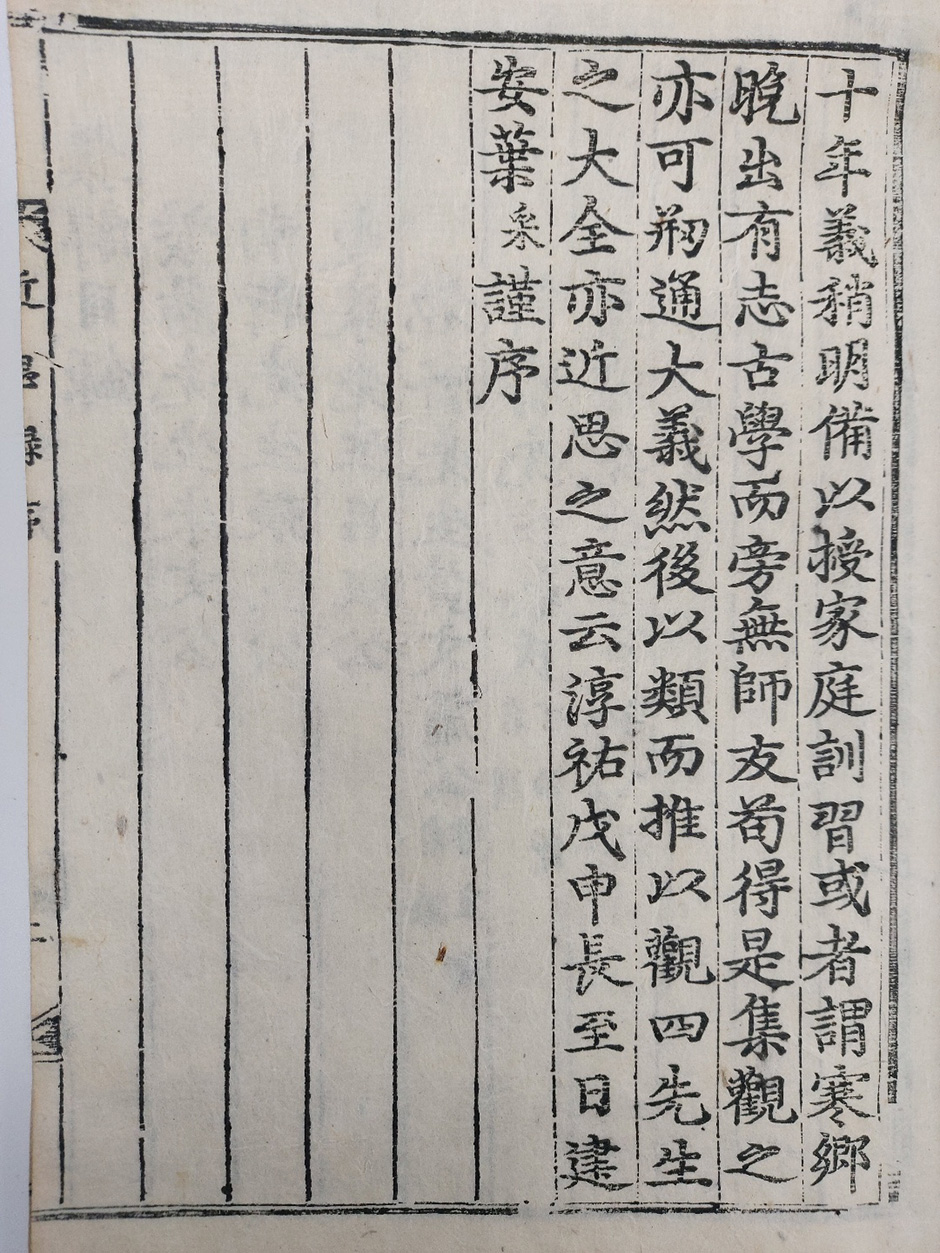 十年義稍明備以授家庭訓習或者謂寒鄉
晚出有志古學而旁無師友苟得是集觀之
亦可刱通大義然後以類而推以觀四先生
之大全亦近思之意云淳祐戊申長至日建
安葉采謹序
近思錄序
二